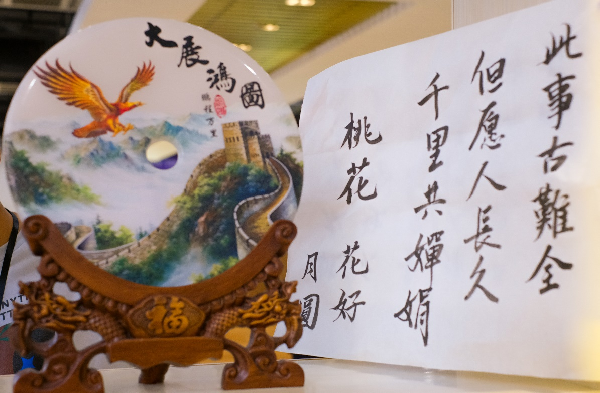 大展鴻圖
鵬程万里
福
此事古難全
但愿人長久
千里共嬋娟
桃花 花好
月圓